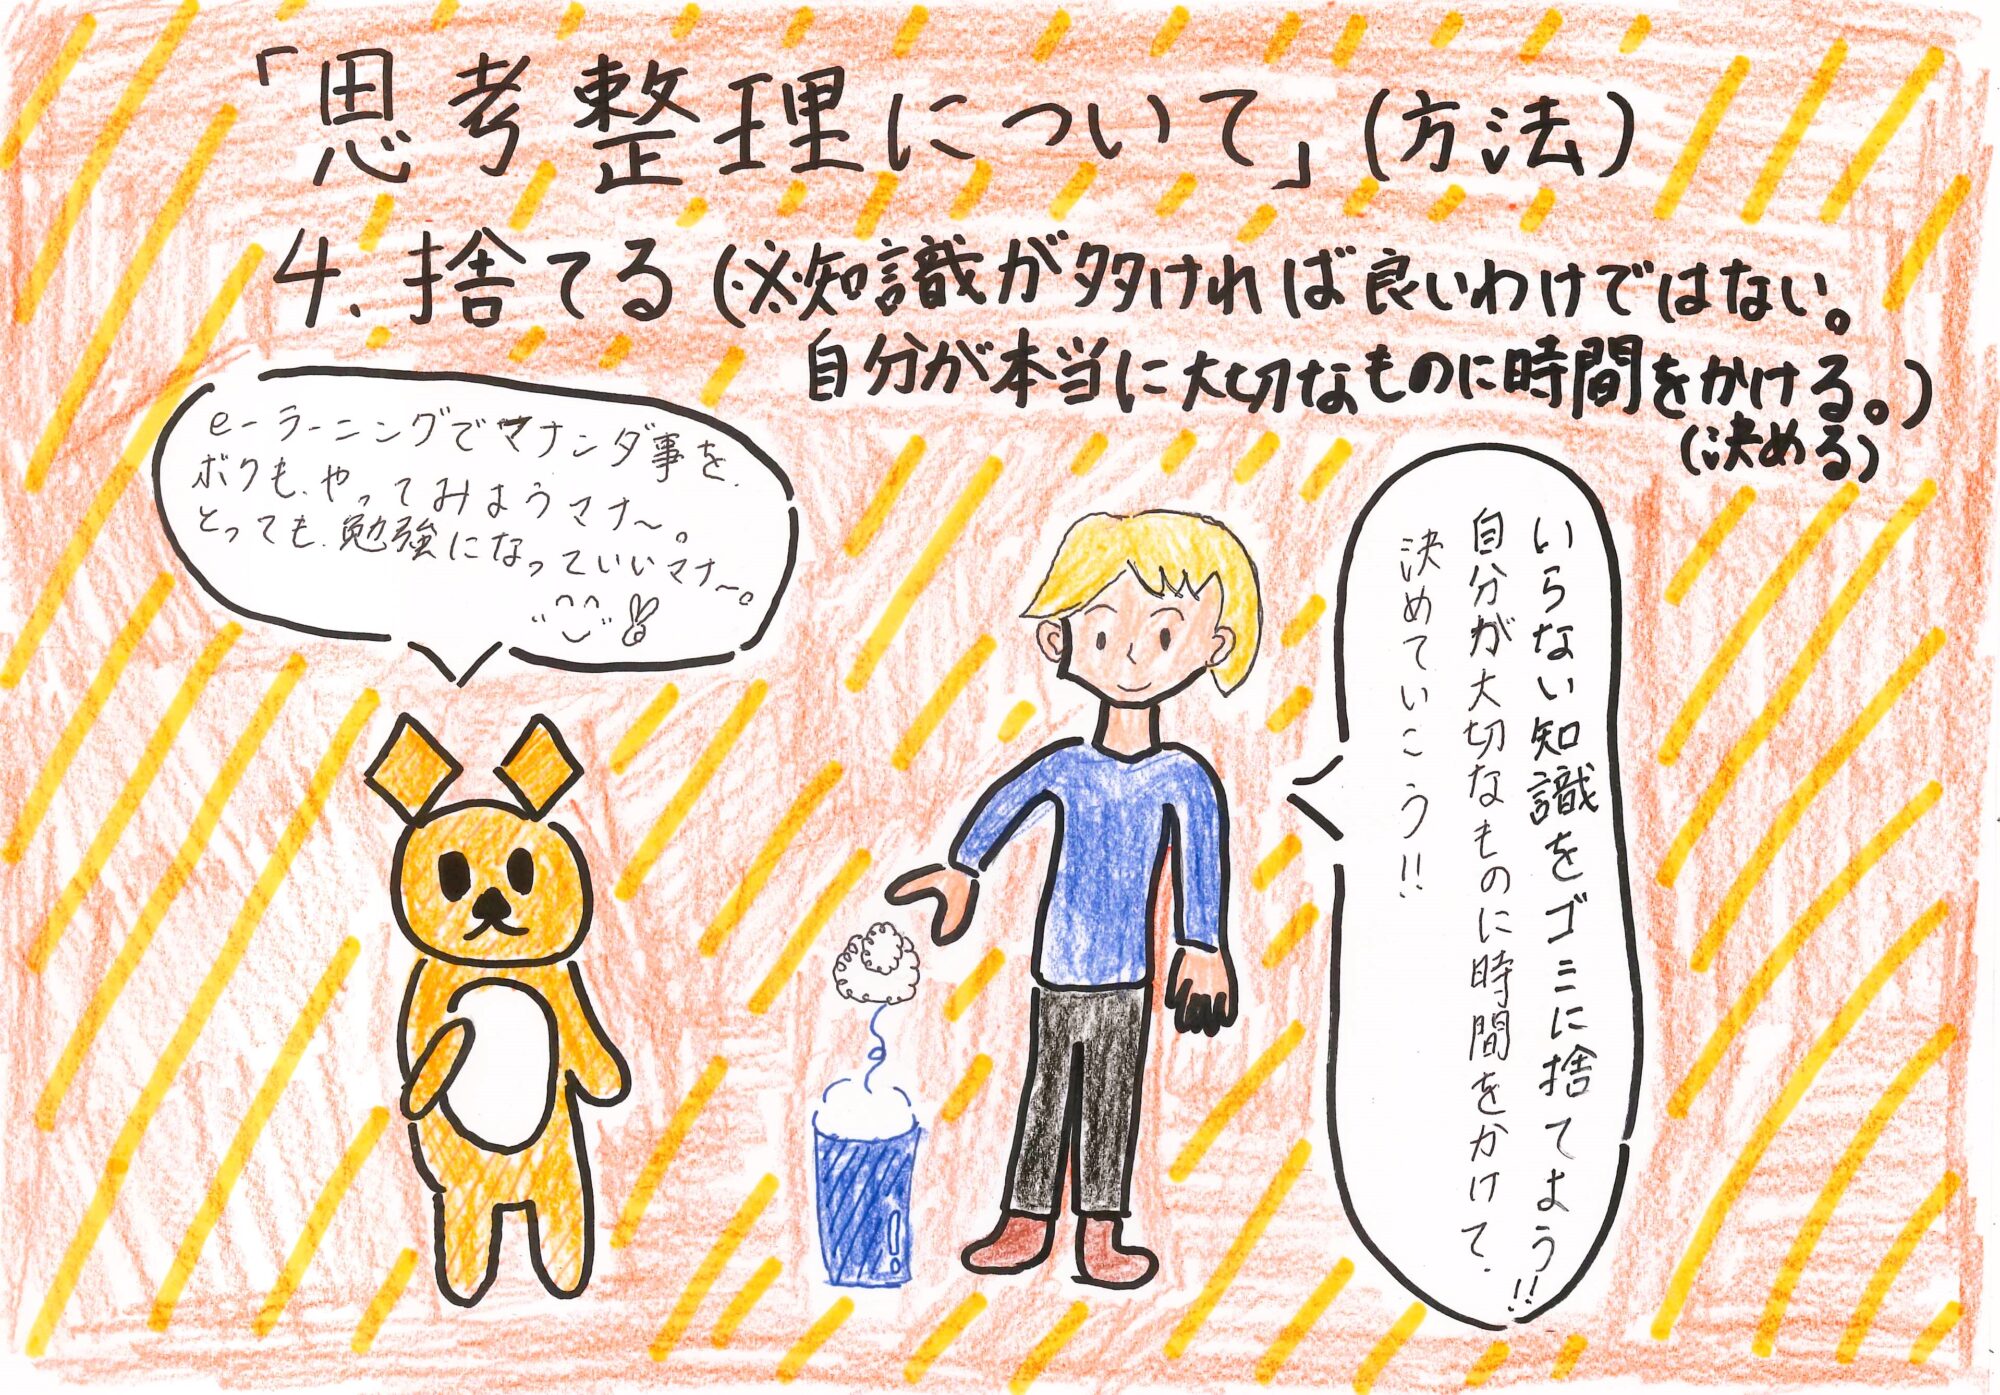 「思考整理について」(方法)
4.捨てる(※知識が多ければ良いわけではない。
自分が本当に大切なものに時間をかける。)
(決める)
e-ラーニングでマナンダ事を、
ボクも、やってみようマナ〜。
とっても、勉強になっていいマナ〜。
いらない知識をゴミに捨てよう!!
自分が大切なものに時間をかけて、
決めていこう!!